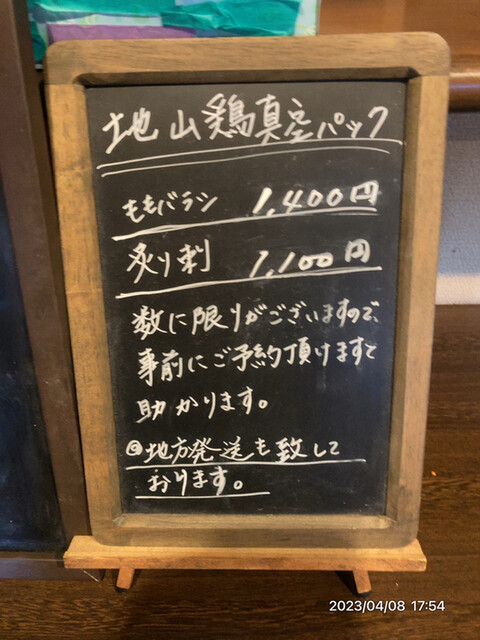 地山鶏真空パック
ももバラシ 1,400円
炙り刺 1,100円
数に限りがございますので、
事前にご予約頂けますと
助かります。
◎地方発送も致して
おります。
2023/04/08 17:54